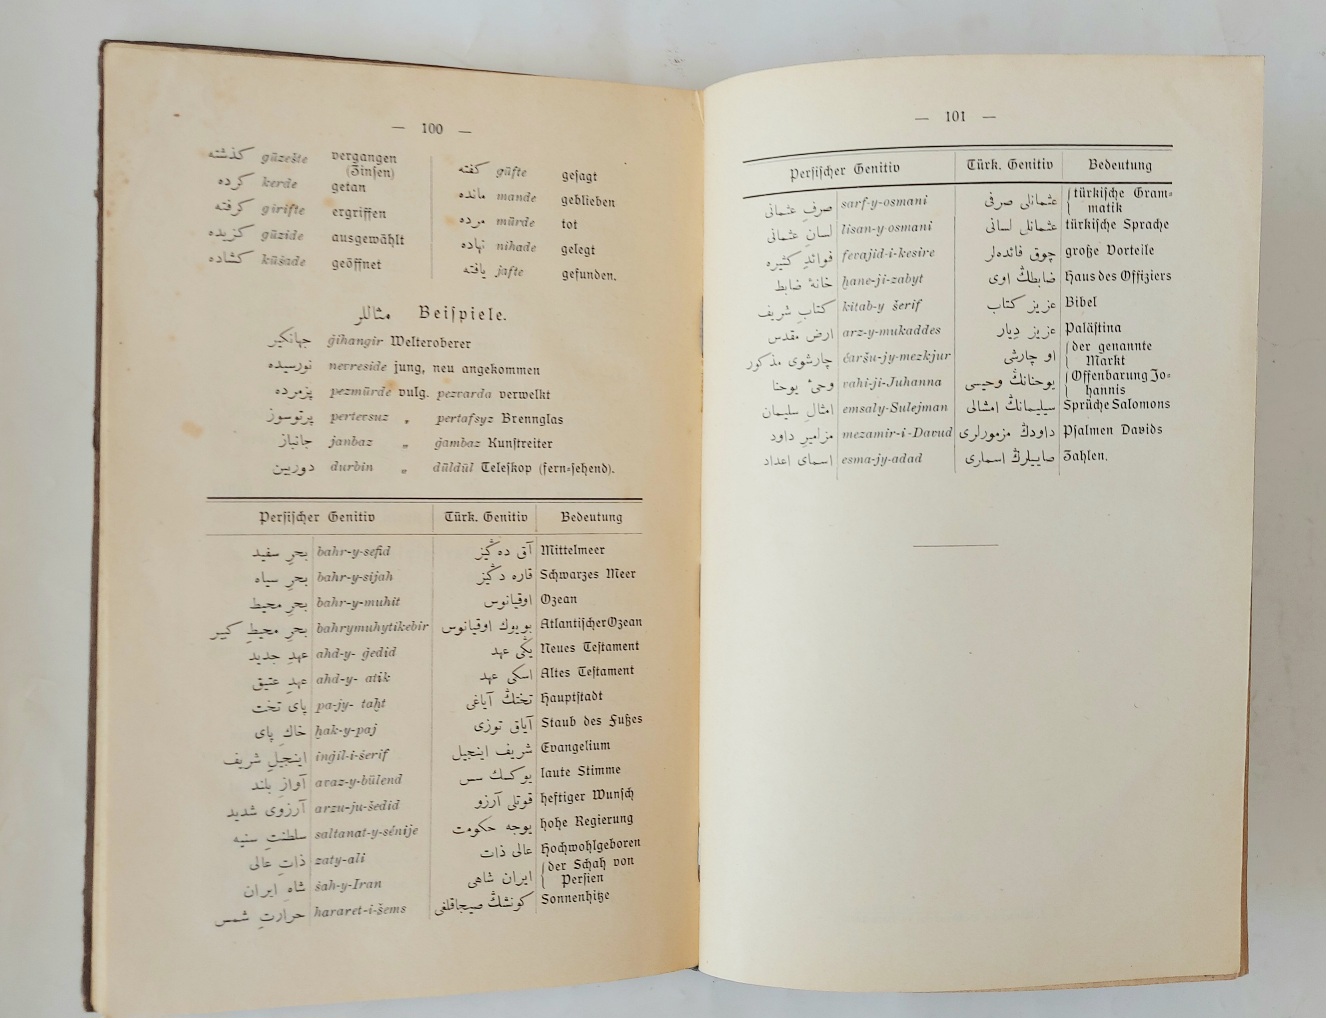 — 100 —
كذشته güzešte vergangen
(Zinsen)
كرده kerde getan
كرفته girifte ergriffen
كزيده güzide ausgewählt
كشاده küšade geöffnet
كفته güfte gesagt
مانده mande geblieben
مرده mürde tot
نهاده nihade gelegt
يافته jafte gefunden.
مثاللر Beispiele.
جهانكير ğihangir Welteroberer
نورسيده nevreside jung, neu angekommen
پزمرده pezmürde vulg. pezvarda verwelkt
پرتوسوز pertevsuz „ pertafsyz Brennglas
جانباز janbaz „ ğambaz Kunstreiter
دوربين durbin „ düldül Teleskop (fern-sehend).
Persischer Genitiv Türk. Genitiv Bedeutung
بحرِ سفيد bahr-y-sefid آق دەڭيز Mittelmeer
بحرِ سياه bahr-y-sijah قاره دڭيز Schwarzes Meer
بحرِ محيط bahr-y-muhit اوقيانوس Ozean
بحرِ محيطِ كبير bahrymuhytikebir بويوك اوقيانوس Atlantischer Ozean
عهدِ جديد ahd-y- ğedid يڭى عهد Neues Testament
عهدِ عتيق ahd-y- atik اسكى عهد Altes Testament
پاى تخت pa-jy- taḫt تختڭ آياغى Hauptstadt
خاكِ پاى ḫak-y-paj آياق توزى Staub des Fußes
اينجيلِ شريف inğil-i-šerif شريف اينجيل Evangelium
آوازِ بلند avaz-y-bülend يوكسك سس laute Stimme
آرزوى شديد arzu-ju-šedid قوتلى آرزو heftiger Wunsch
سلطنتِ سنيه saltanat-y-sénije يوجه حكومت hohe Regierung
ذاتِ عالى zaty-ali عالى ذات Hochwohlgeboren
شاهِ ايران šah-y-Iran ايران شاهى der Schah von
Persien
حرارتِ شمس hararet-i-šems كونشڭ صيجاقلغى Sonnenhitze
— 101 —
Persischer Genitiv Türk. Genitiv Bedeutung
صرفِ عثمانى sarf-y-osmani عثمانلى صرفى türkische Gram-
matik
لسانِ عثمانى lisan-y-osmani عثمانلى لسانى türkische Sprache
فوائدِ كثيره fevajid-i-kesire چوق فائدەلر große Vorteile
خانۀ ضابط ḫane-ji-zabyt ضابطڭ اوى Haus des Offiziers
كتابِ شريف kitab-y šerif عزيز كتاب Bibel
ارضِ مقدس arz-y-mukaddes عزيز ديار Palästina
چارشوى مذكور čaršu-jy-mezkjur او چارشى der genannte
Markt
وحىٔ يوحنا vahi-ji-Juhanna يوحنانڭ وحيسى Offenbarung Jo-
hannis
امثالِ سليمان emsaly-Sulejman سليمانڭ امثالى Sprüche Salomons
مزاميرِ داود mezamir-i-Davud داودڭ مزمورلرى Psalmen Davids
اسماى اعداد esma-jy-adad صاييلرڭ اسمارى Zahlen.